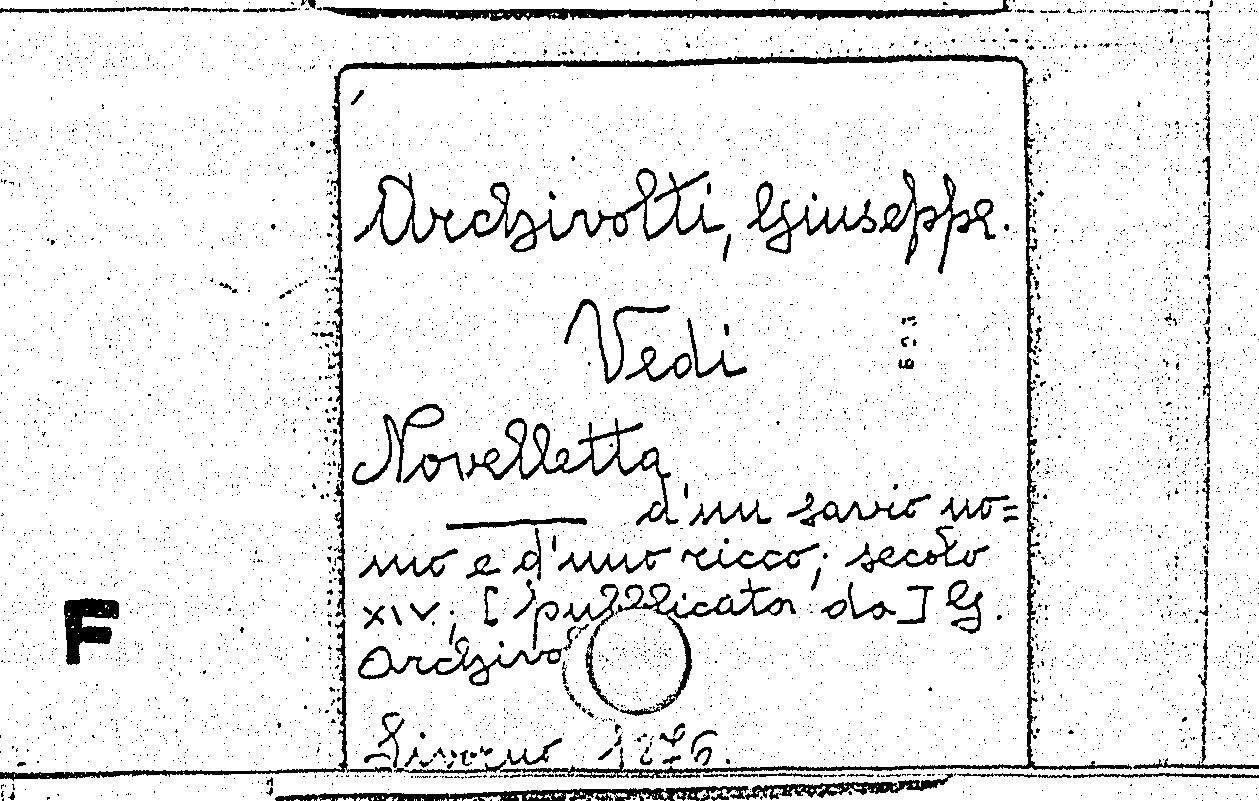 Archivolti, Giuseppe.
Vedi
Novelletta
d'un savio uo=
mo e d'uno ricco; secolo
XIV; [pubblicata da] G.
Archivo
Livorno 1876.
F